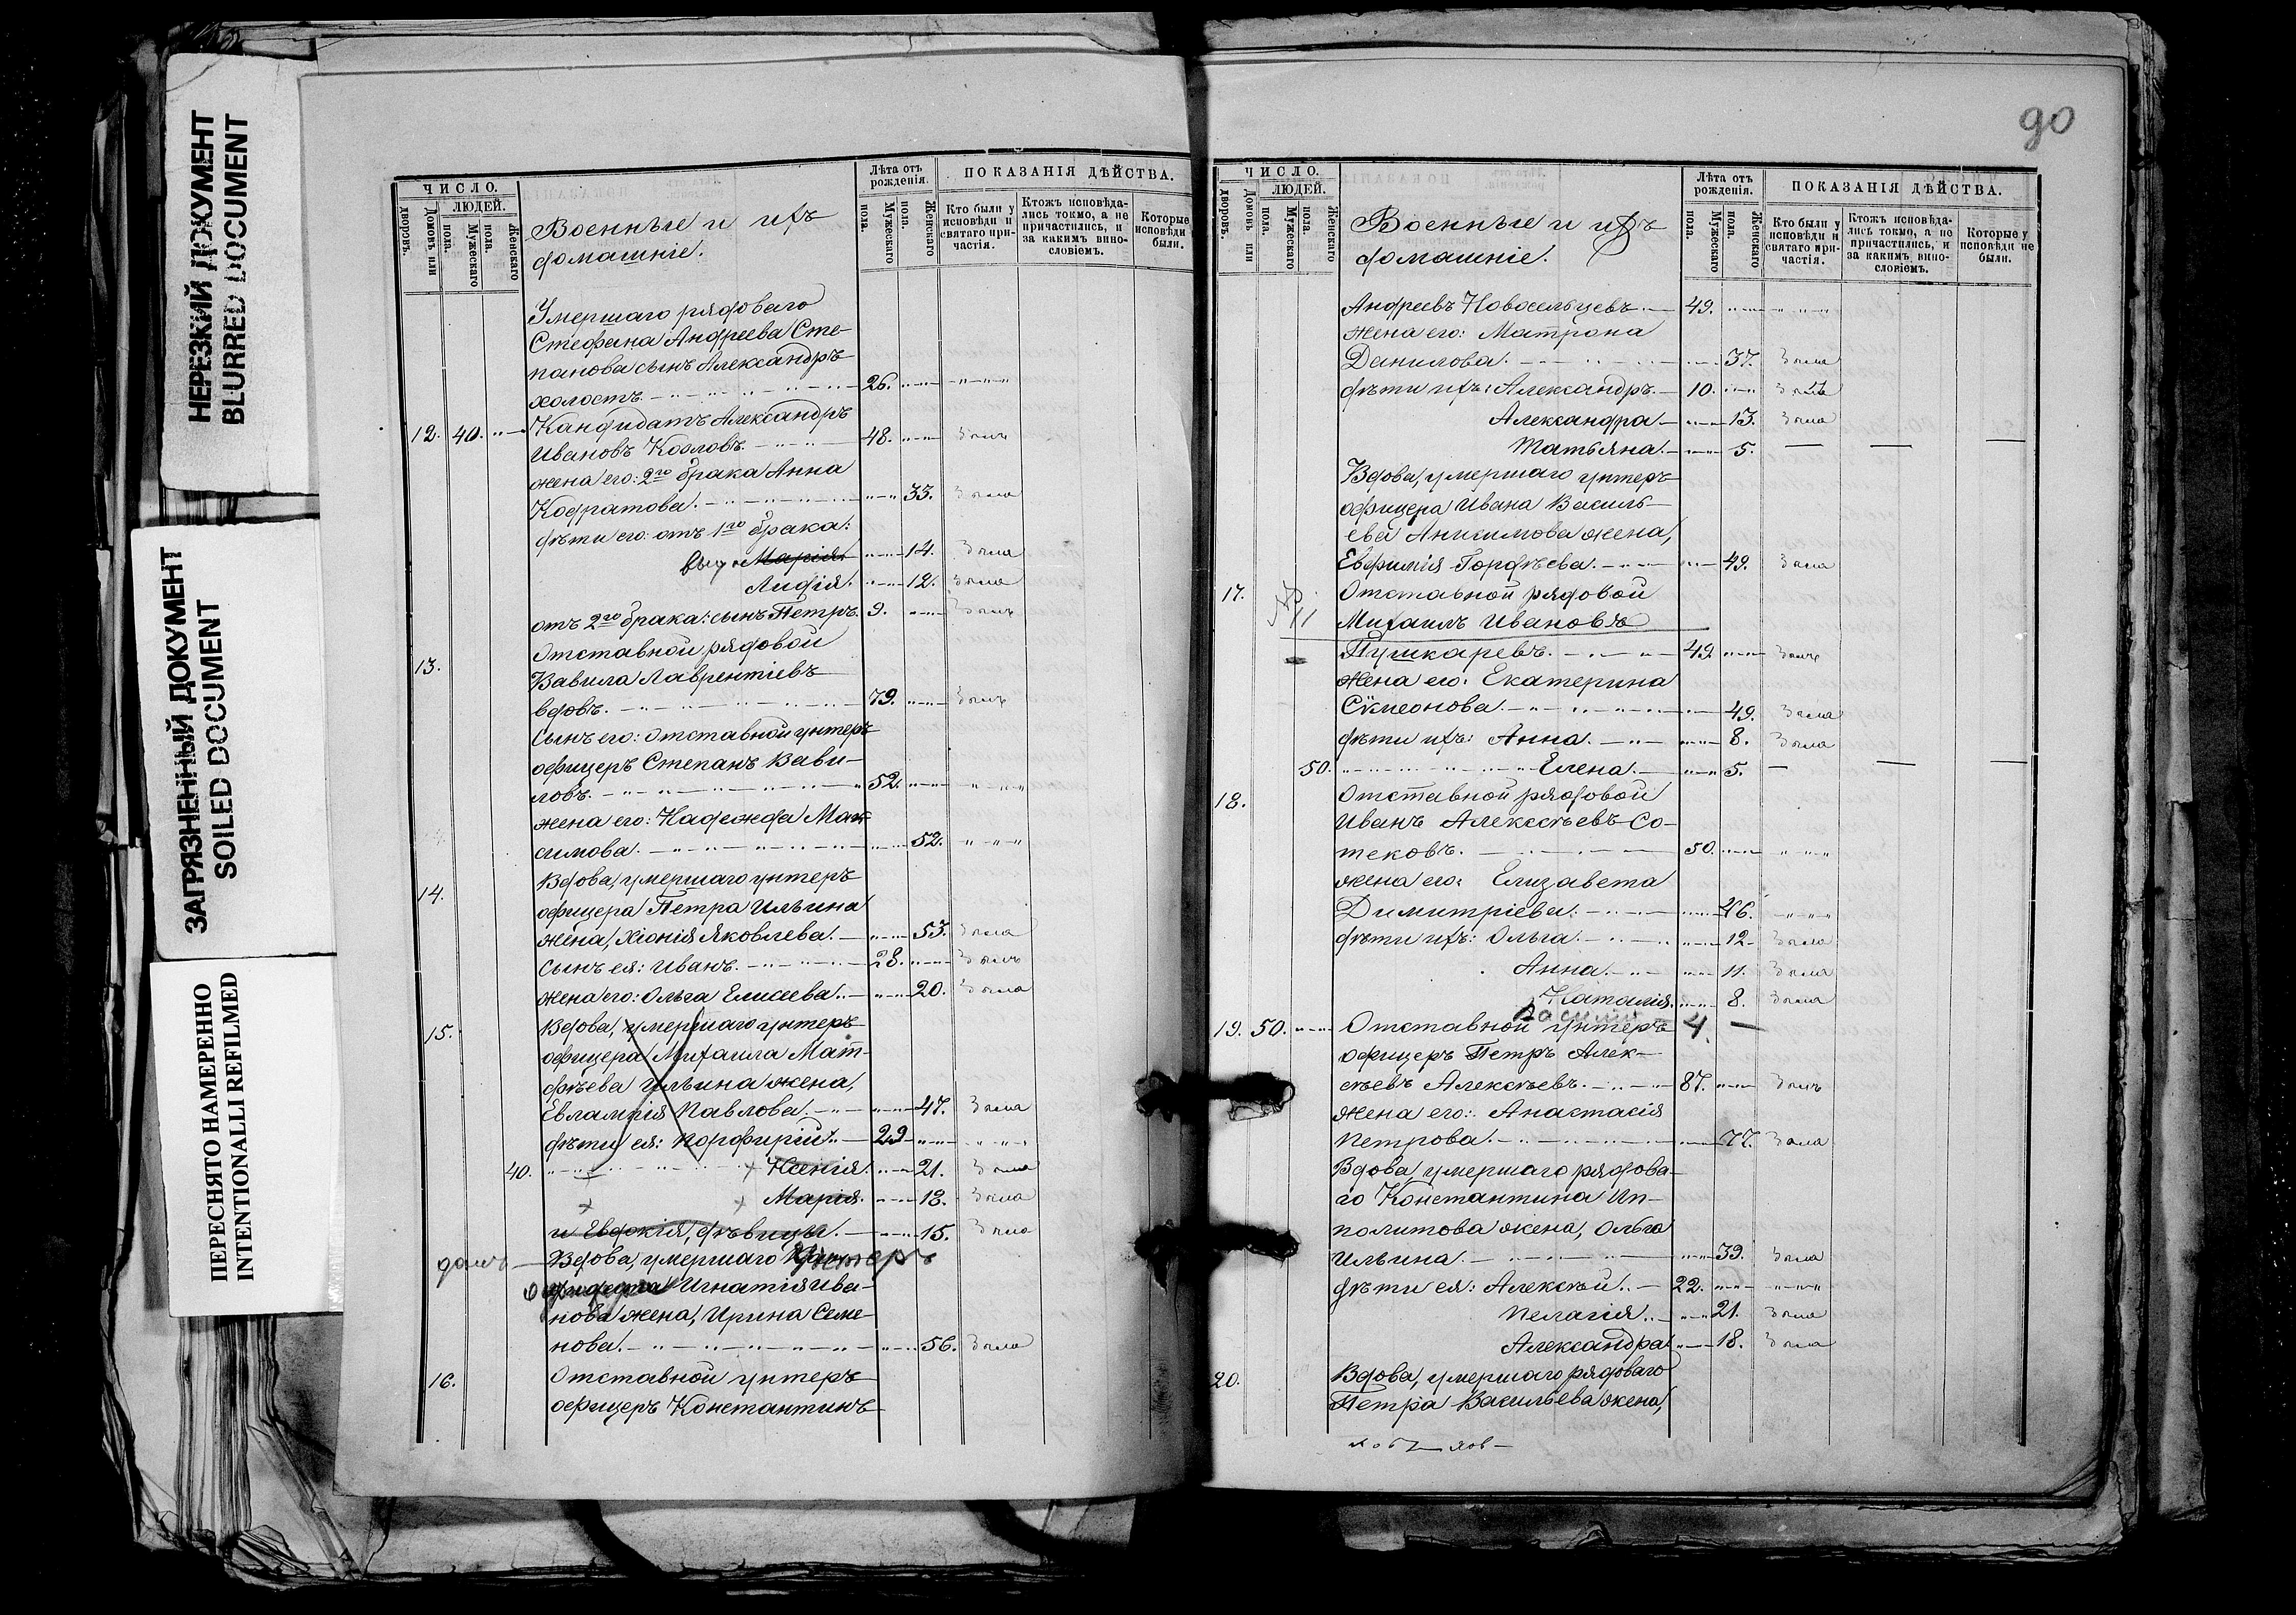 НЕРЕЗКИЙ ДОКУМЕНТ
BLURRED DOCUMENT
ЗАГРЯЗНЕННЫЙ ДОКУМЕНТ
SOILED DOCUMENT
ПЕРЕСНЯТО НАМЕРЕННО
INTENTIONALLI REFILMED
ЧИСЛО.
ЛЮДЕЙ.
Домовъ или дворовъ.
Мужескаго пола.
Женскаго пола.
Военные и ихъ
домашніе.
Лѣта отъ рожденія.
Мужескаго пола.
Женскаго пола.
ПОКАЗАНІЯ ДѢЙСТВА.
Кто были у исповѣди и святаго причастія.
Ктожъ исповѣдались токмо, а не причастились, и за какимъ винословіемъ.
Которые исповѣди были.
Умершаго рядоваго
Стефана Андреева Сте-
панова сынъ Александръ
холостъ. 26.
12. 40. Кандидатъ Александръ
Ивановъ Козловъ. 48. Былъ
жена его: 2го брака Анна
Кодратова. 35. Была
дѣти его: отъ 1го брака:
Марія. 14. Была
Лидія. 12. Была
отъ 2го брака: сынъ Петръ. 9. Былъ
13. Отставной рядовой
Вавила Лаврентіевъ
вдовъ. 79. Былъ
Сынъ его: отставной унтеръ
офицеръ Степанъ Вави-
ловъ. 52.
жена его: Надежда Мак-
симова. 52.
14. Вдова, умершаго унтеръ
офицера Петра Ильина
жена, Хіонія Яковлева. 53. Была
Сынъ ея: Иванъ. 28. Былъ
жена его: Ольга Елисеева. 20. Была
15. Вдова, умершаго унтеръ
офицера Михаила Мат-
фѣева Ильина жена,
Евлампія Павлова. 47. Была
дѣти ея: Порфирій. 29
40. Ксенія. 21. Была
Марія. 18. Была
и Евдокія, дѣвицы. 15. Была
домъ Вдова, умершаго унтеръ
офицера Игнатія Ива-
нова жена, Ирина Семе-
нова. 56. Была
16. Отставной унтеръ
офицеръ Константинъ
90
ЧИСЛО.
ЛЮДЕЙ.
Домовъ или дворовъ.
Мужескаго пола.
Женскаго пола.
Военные и ихъ
домашніе.
Лѣта отъ рожденія.
Мужескаго пола.
Женскаго пола.
ПОКАЗАНІЯ ДѢЙСТВА.
Кто были у исповѣди и святаго причастія.
Ктожъ исповѣдались токмо, а не причастились, и за какимъ винословіемъ.
Которые у исповѣди не были.
Андреевъ Новосельцевъ. 49.
жена его: Матрона
Данилова. 37. Была
дѣти ихъ: Александръ. 10. Былъ
Александра 13. Была
Татьяна. 5.
Вдова, умершаго унтеръ
офицера Ивана Василь-
ева Анисимова жена,
Евфимія Гордѣева. 49. Была
17. Отставной рядовой
Михаилъ Ивановъ
Пушкаревъ. 49 Былъ
жена его: Екатерина
Сѵмеонова. 49. Была
дѣти ихъ: Анна. 8. Была
50. Елена. 5.
18. Отставной рядовой
Иванъ Алексѣевъ Со-
тековъ. 50.
жена его: Елизавета
Димитріева. 46.
дѣти ихъ: Ольга. 12. Была
Анна. 11. Была
Наталія. 8. Была
Василій 4.
19. 50. Отставной унтеръ
офицеръ Петръ Алек-
сѣевъ Алексѣевъ. 87. Былъ
жена его: Анастасія
Петрова. 77. Была
Вдова, умершаго рядова-
го Константина Ип-
политова жена, Ольга
Ильина. 39. Была
дѣти ея: Алексѣй. 22.
Пелагія. 21. Была
Александра. 18. Была
20. Вдова, умершаго рядоваго
Петра Васильева жена,